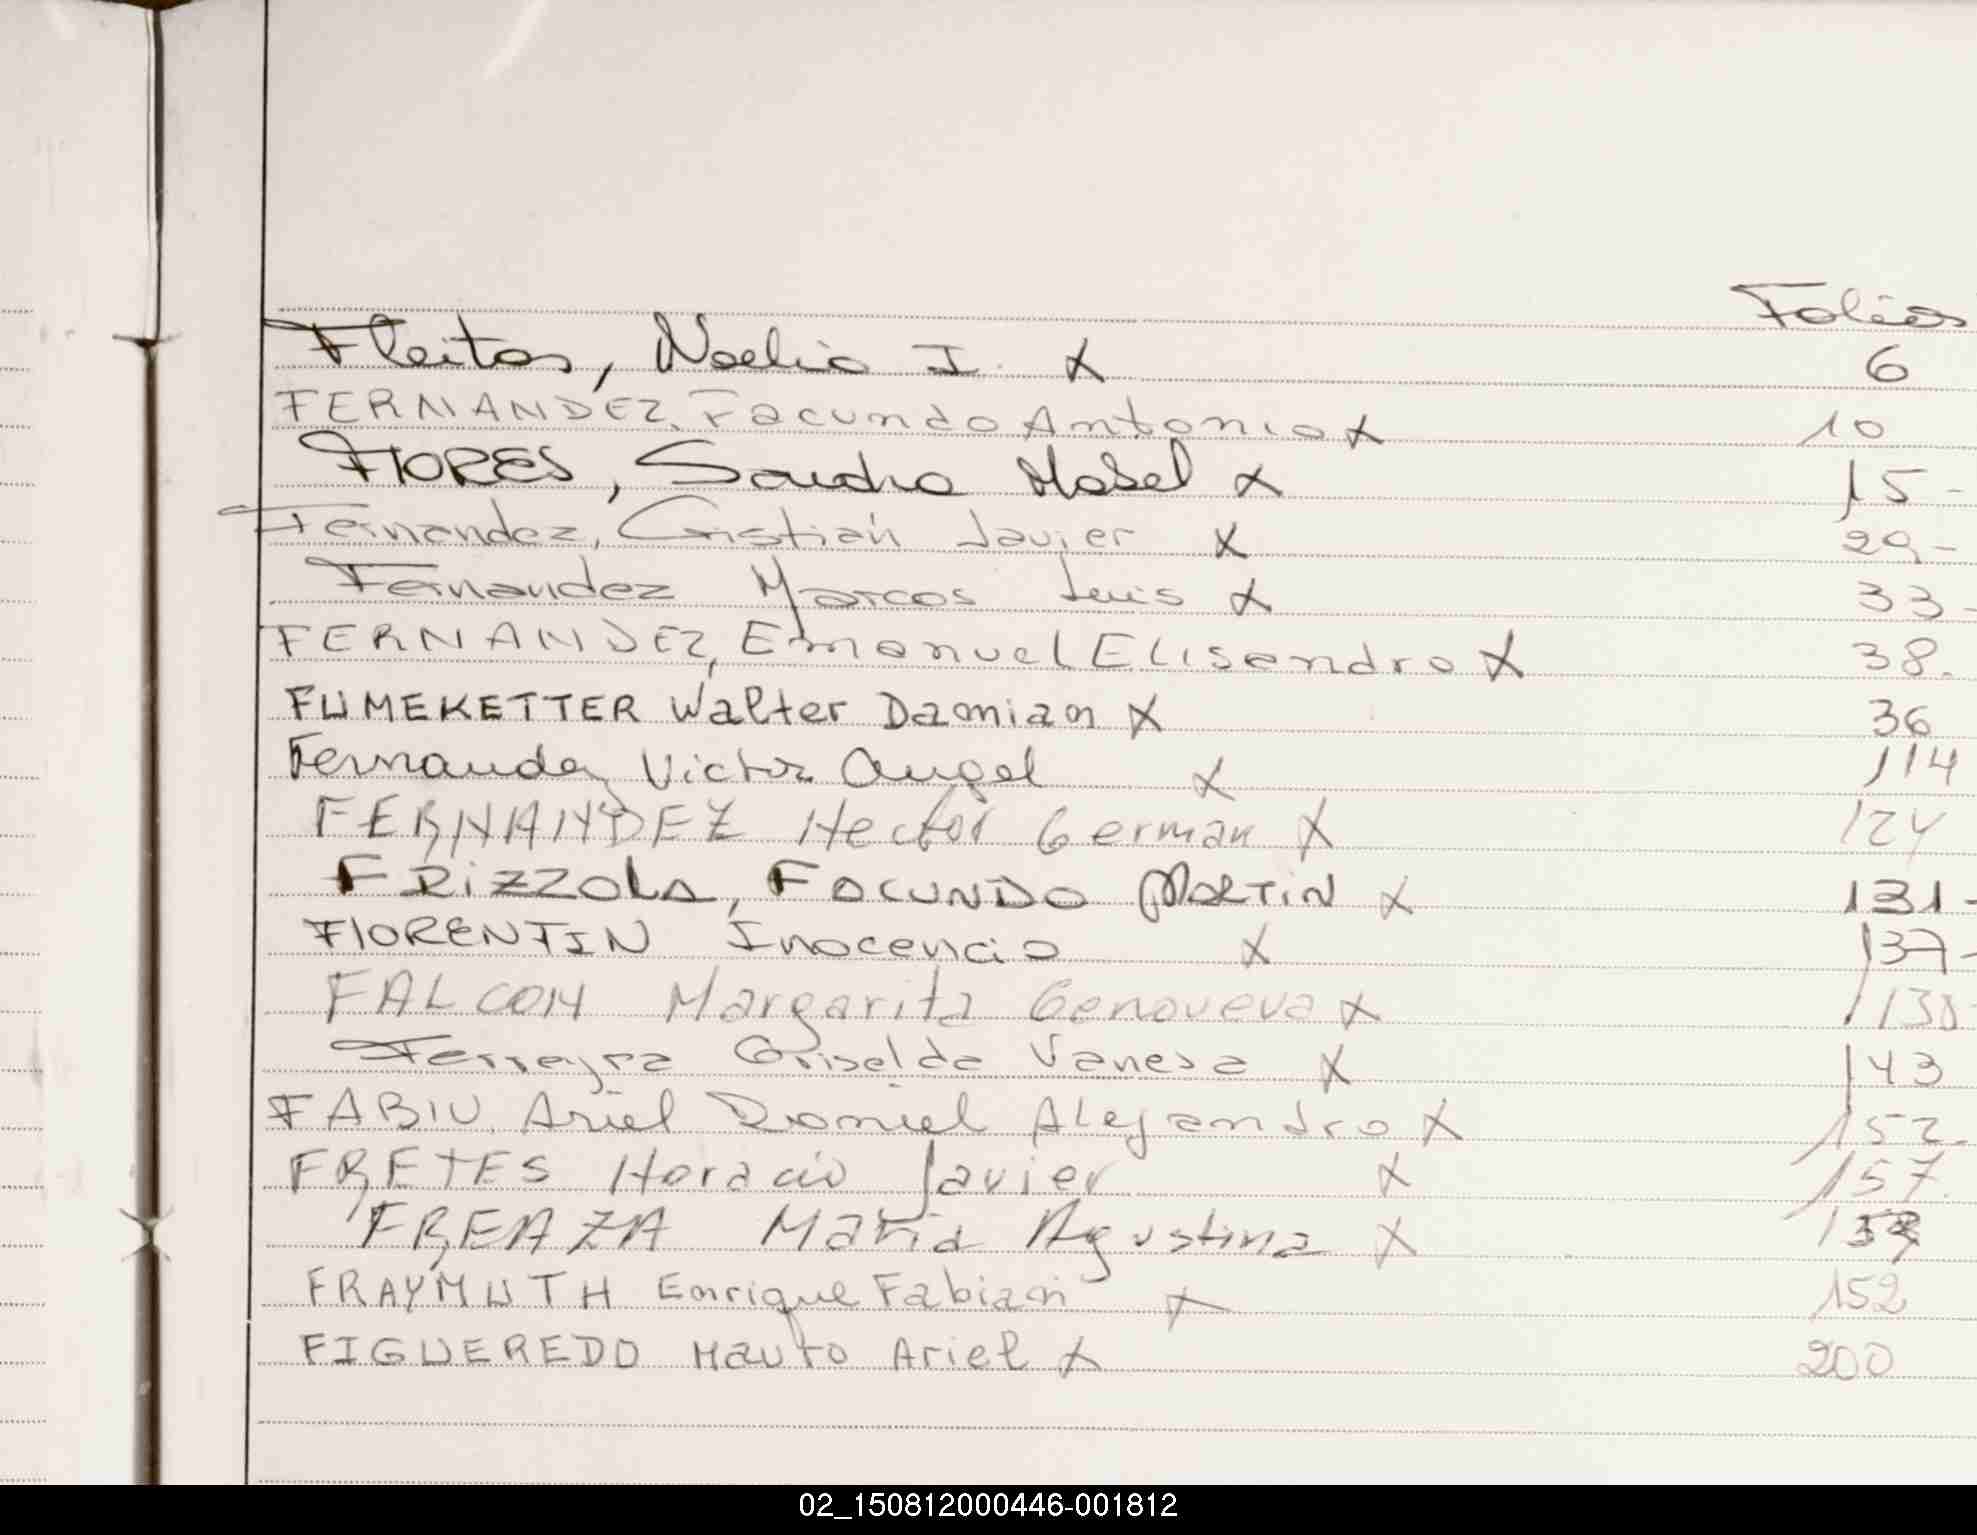 Folios
Fleitas, Noelia I. X 6
FERNANDEZ, Facundo Antonio X 10
FLORES, Sandra Mabel X 15-
Fernandez, Cristian Javier X 29-
Fernandez Marcos Luis X 33-
FERNANDEZ, Emanuel Elisandro X 38.
FUMEKETTER Walter Damian X 36
Fernandez Victor Angel X 114
FERNANDEZ Hector German X 124
FRIZZOLA, FACUNDO MARTIN X 131-
FLORENTIN Inocencio X 137-
FALCON Margarita Genoveva X 138
Ferreyra Griselda Vanesa X 143
FABIU Ariel Daniel Alejandro X 152-
FRETES Horacio Javier X 157.
FREAZA Maria Agustina X
FRAYMUTH Enrique Fabian X 152
FIGUEREDO Mauro Ariel X 200
02_150812000446-001812